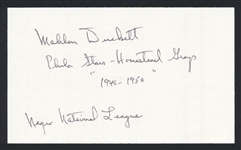 Mahlon Duckett
Phila Stars - Homestead Grays
"1940-1950"
Negro National League